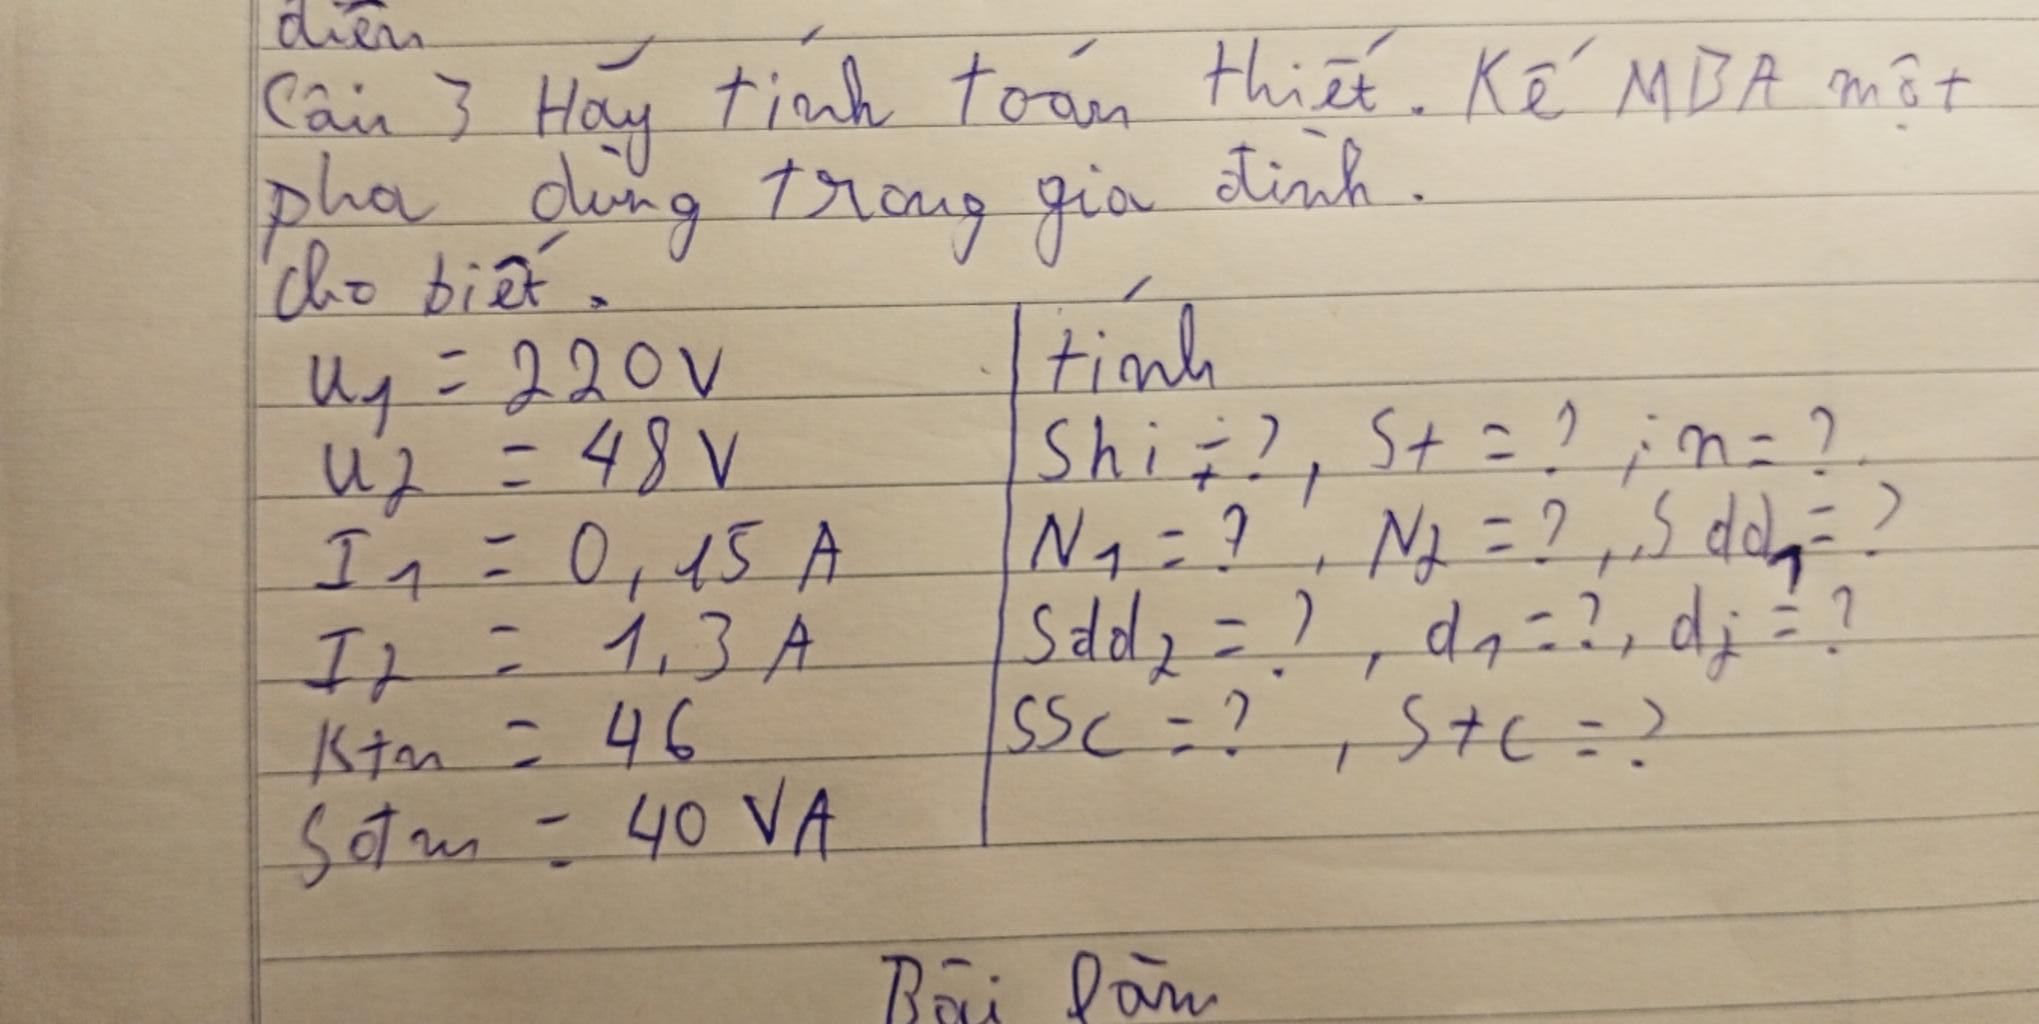 diện
Câu 3 Hãy tính toán thiết. Kế MBA một
pha dùng trong gia đình.
Cho biết.
U1 = 220V
U2 = 48V
I1 = 0,15 A
I2 = 1,3 A
Ktn = 46
Sđm = 40 VA
tính
Shi = ?, St = ?; n = ?
N1 = ?, N2 = ?, Sdd1 = ?
Sdd2 = ?, d1 = ?, d2 = ?
SSc = ?, Stc = ?
Bài làm